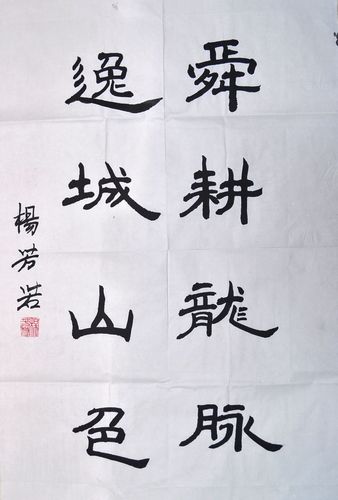 舜耕龍脉
逸城山色
楊芳若